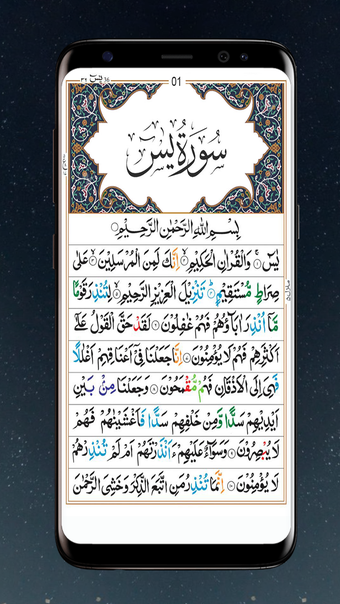 يٰسٓ 36 01
سُورَةُ يٰسٓ
بِسْمِ اللهِ الرَّحْمٰنِ الرَّحِيْمِ
يٰسٓ وَالْقُرْاٰنِ الْحَكِيْمِ اِنَّكَ لَمِنَ الْمُرْسَلِيْنَ عَلٰى
صِرَاطٍ مُّسْتَقِيْمٍ تَنْزِيْلَ الْعَزِيْزِ الرَّحِيْمِ لِتُنْذِرَ قَوْمًا
مَّآ اُنْذِرَ اٰبَآؤُهُمْ فَهُمْ غٰفِلُوْنَ لَقَدْ حَقَّ الْقَوْلُ عَلٰٓى
اَكْثَرِهِمْ فَهُمْ لَا يُؤْمِنُوْنَ اِنَّا جَعَلْنَا فِيْٓ اَعْنَاقِهِمْ اَغْلٰلًا
فَهِىَ اِلَى الْاَذْقَانِ فَهُمْ مُّقْمَحُوْنَ وَجَعَلْنَا مِنْۢ بَيْنِ
اَيْدِيْهِمْ سَدًّا وَّمِنْ خَلْفِهِمْ سَدًّا فَاَغْشَيْنٰهُمْ فَهُمْ
لَا يُبْصِرُوْنَ وَسَوَآءٌ عَلَيْهِمْ ءَاَنْذَرْتَهُمْ اَمْ لَمْ تُنْذِرْهُمْ
لَا يُؤْمِنُوْنَ اِنَّمَا تُنْذِرُ مَنِ اتَّبَعَ الذِّكْرَ وَخَشِىَ الرَّحْمٰنَ